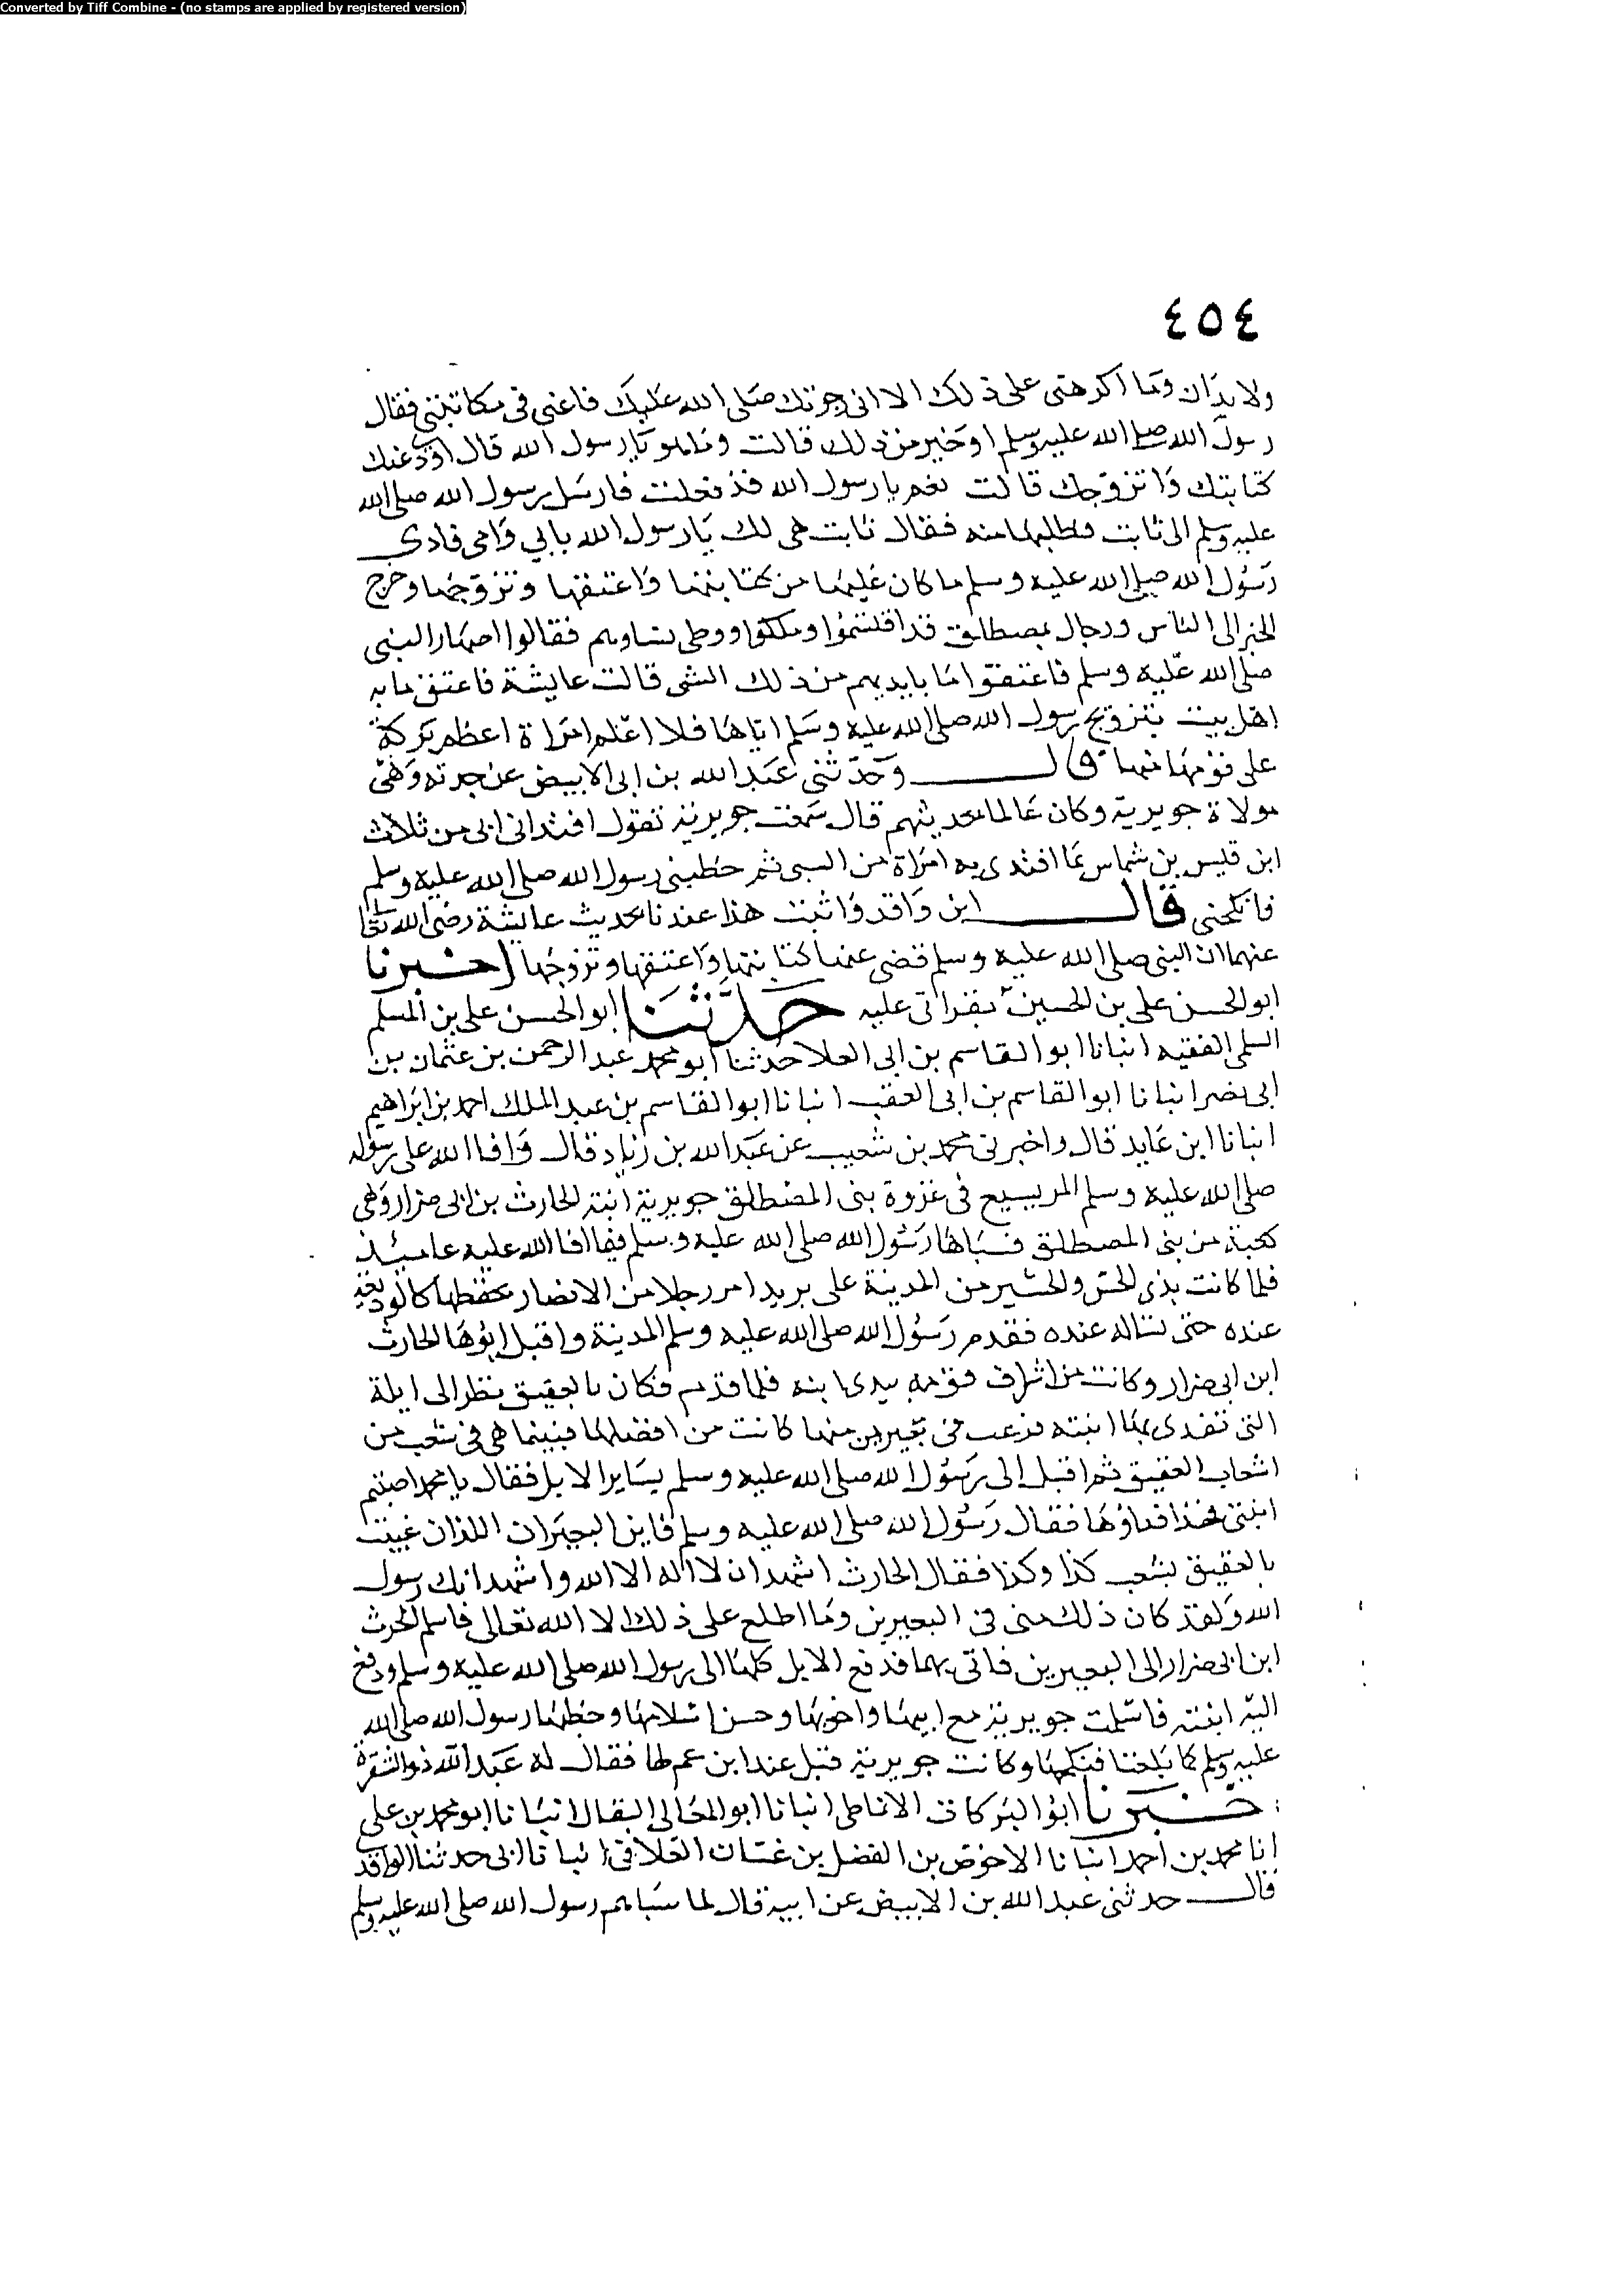 Converted by Tiff Combine - (no stamps are applied by registered version)
٤٥٤
ولا يدان وما اكرهنى على ذلك الا انى رجوتك صلى الله عليك فاعنى فى مكاتبتى فقال
رسول الله صلى الله عليه وسلم او خير من ذلك قالت وما هو يا رسول الله قال اودى عنك
كتابتك واتزوجك قالت نعم يا رسول الله قد فعلت فارسل رسول الله صلى الله
عليه وسلم الى ثابت فطلبها منه فقال ثابت هى لك يا رسول الله بابي وامى فادى
رسول الله صلى الله عليه وسلم ما كان عليها من كتابتها واعتقها وتزوجها وخرج
الخبر الى الناس ورجال بمصطلق قد اقتسموا وملكوا ووطى نساوهم فقالوا اصهار النبى
صلى الله عليه وسلم فاعتقوا ما بايديهم من ذلك الشى قالت عايشة فاعتق مايه
اهل بيت بتزويج رسول الله صلى الله عليه وسلم اياها فلا اعلم امراة اعظم بركة
على قومها منها قال وحدثنى عبد الله بن ابى الابيض عن جدته وهى
مولاة جويرية وكان عالما بحديثهم قال سمعت جويرية تقول افتدانى ابى من ثلاث
ابن قيس بن شماس بما افتدى به امراة من السبى ثم خطبنى رسول الله صلى الله عليه وسلم
فانكحنى قال ابن واقد واثبت هذا عندنا حديث عايشة رضى الله تعالى
عنهما ان النبى صلى الله عليه وسلم قضى عنها كتابتها واعتقها وتزوجها اخبرنا
ابو الحسن على بن الحسين بقراتى عليه حدثنا ابو الحسن على بن المسلم
السلمى الفقيه انبانا ابو القاسم بن ابى العلا حدثنا ابو محمد عبد الرحمن بن عثمان بن
ابى نصر انبانا ابو القاسم بن ابى العقب انبانا ابو القاسم بن عبد الملك احمد بن ابراهيم
انبانا ابن عايد قال واخبرنى محمد بن شعيب عن عبد الله بن زياد قال وافا الله على رسوله
صلى الله عليه وسلم المريسيع فى غزوة بنى المصطلق جويرية ابنة الحارث بن ابى ضرار وهى
كعبة من بنى المصطلق فسباها رسول الله صلى الله عليه وسلم فيما افا الله عليه عاميئذ
فلما كانت بذى الجيش من المدينة على بريد امر رجلا من الانصار بحفظها كالوديعة
عنده حتى نساله عنده فقدم رسول الله صلى الله عليه وسلم المدينة واقبل ابوها الحارث
ابن ابى ضرار وكانت من اشراف قومه يدى ابنه فلما قدم فكان بالعقيق نظر الى ابلة
التى تفدى بها ابنته فرعب فى بعيرين منها كانت من افضلها فبينما هى فى شعب من
اشعاب العقيق ثم اقبل الى رسول الله صلى الله عليه وسلم بساير الابل فقال يا محمد اصبتم
ابنتى فهذا فداؤها فقال رسول الله صلى الله عليه وسلم فاين البعيران اللذان غيبت
بالعقيق بشعب كذا وكذا فقال الحارث اشهد ان لا اله الا الله واشهد انك رسول
الله ولقد كان ذلك منى فى البعيرين وما اطلع على ذلك الا الله تعالى فاسلم الحرث
ابن ابى ضرار الى البعيرين فاتى بهما فدفع الابل كلها الى رسول الله صلى الله عليه وسلم ودفع
اليه ابنته فاسلمت جويرية مع ابيها واخويها وحسن اسلامها وخطبها رسول الله صلى الله
عليه وسلم كما بلغنا فنكحها وكانت جويرية قبل عند ابن عم لها فقال له عبد الله ذو الشقرة
خبرنا ابو البركات الانماطى انبانا ابو المعالى البقال انبانا ابو محمد بن على
انا محمد بن احمد انبانا الاحوص بن الفضل بن غسان العلافى انبانا ابى حدثنا الواقد
قال حدثنى عبد الله بن الابيض عن ابيه قال لما سباهم رسول الله صلى الله عليه وسلم